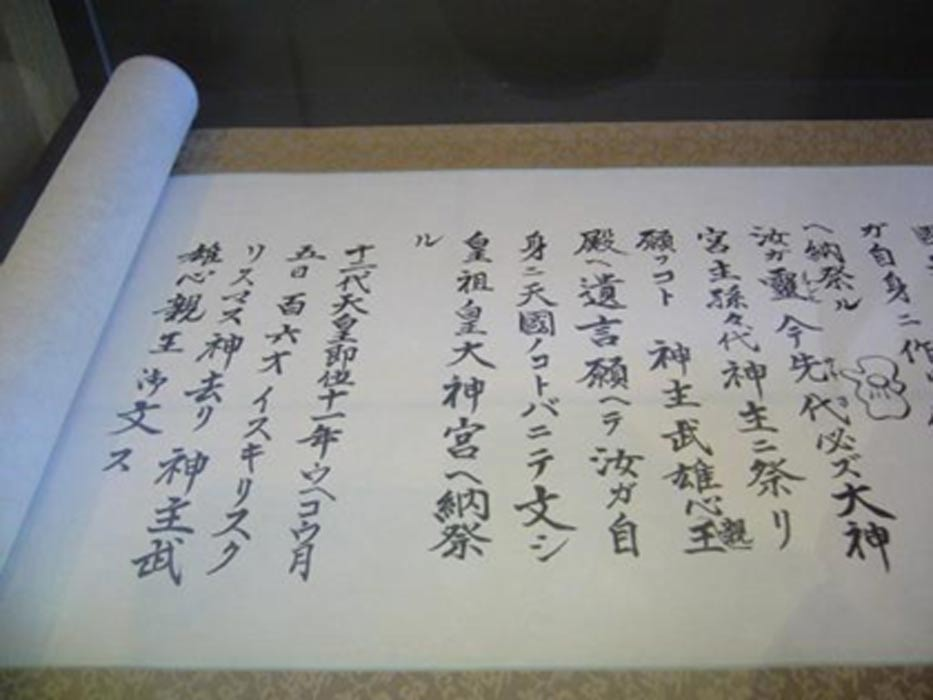 ガ自身ニ作
ヘ納祭ル
汝ガ靈今先代必ズ大神
宮主孫々代神主ニ祭リ
願フコト 神主武雄心親王
殿ヘ遺言願ヘテ汝ガ自
身ニ天國ノコトバニテ文シ
皇祖皇大神宮ヘ納祭
ル
十二代天皇即位十一年ウヘコウ月
五日 百六才 イスキリスク
リスマス 神去リ 神主武
雄心親王 御文ス